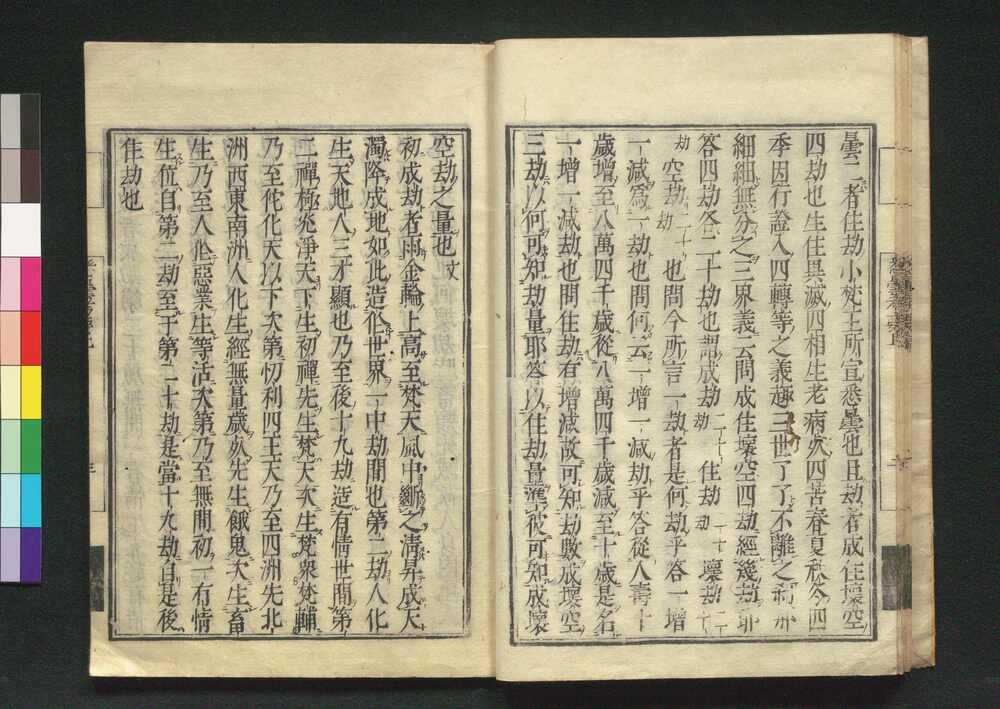 曇二者住劫小梵王所宣悉曇也且劫者成住壞空
四劫也生住異滅四相生老病死四苦春夏秋冬四
季因行證入四轉等之義趣三世了了不離之
細細無分之三界義云問成住壞空四劫經幾劫耶
答四劫各二十劫也謂成劫二十劫住劫二十劫壞劫二十
劫空劫二十劫也問今所言一劫者是何劫乎答一增
一減爲一劫也問何云一增一減劫乎答從人壽十
歲增至八萬四千歲從八萬四千歲減至十歲是名
一增一減劫也問住劫有增減故可知劫數成壞空
三劫以何可知劫量耶答以住劫量準彼可知成壞
空劫之量也文
初成劫者雨金輪上高至梵天風中斷之清昇成天
濁降成地如此造化世界一中劫間也第二劫人化
生天地人三才顯也乃至後十九劫造有情世間第
二禪極光淨天下生初禪先生梵天次生梵衆梵輔
乃至他化天以下次第忉利四王天乃至四洲先北
洲西東南洲人化生經無量歲歟先生餓鬼次生畜
生乃至人作惡業生等活次第乃至無間初一有情
生位自第二劫至于第二十劫是當十九劫自是後
住劫也